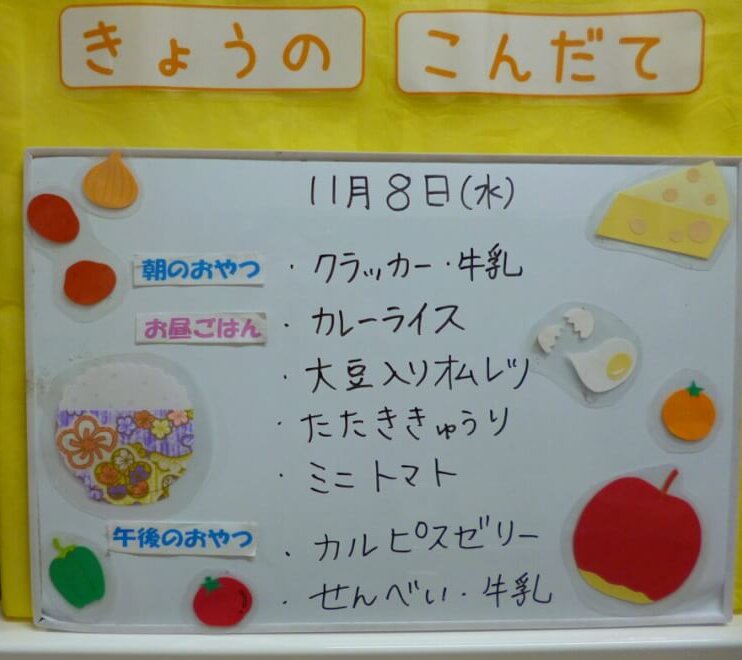 きょうの こんだて
11月8日(水)
朝のおやつ ・クラッカー・牛乳
お昼ごはん ・カレーライス
・大豆入りオムレツ
・たたききゅうり
・ミニトマト
午後のおやつ ・カルピスゼリー
・せんべい・牛乳